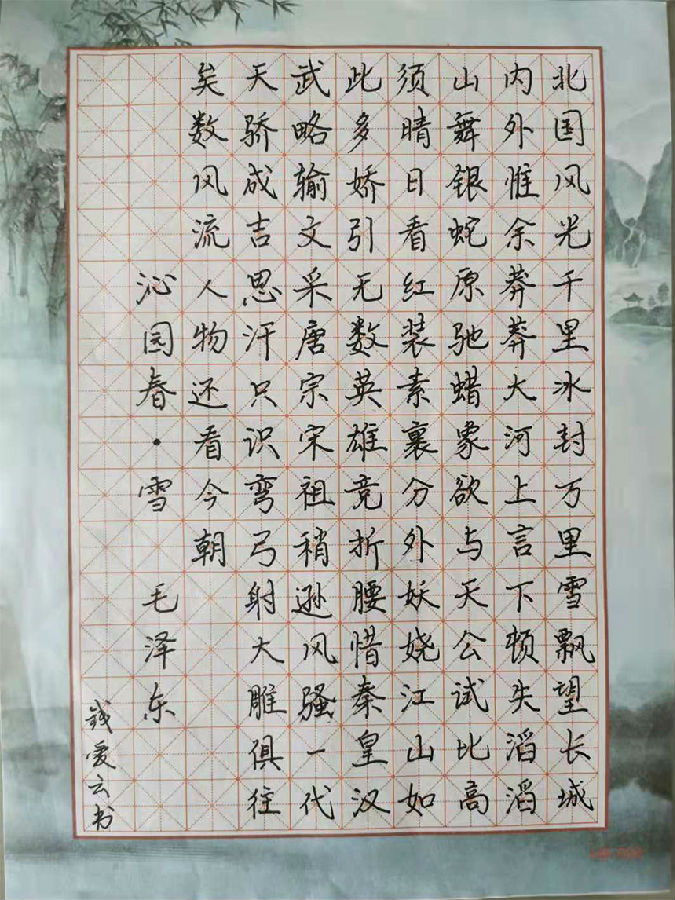 北国风光千里冰封万里雪飘望长城
内外惟余莽莽大河上言下顿失滔滔
山舞银蛇原驰蜡象欲与天公试比高
须晴日看红装素裹分外妖娆江山如
此多娇引无数英雄竞折腰惜秦皇汉
武略输文采唐宗宋祖稍逊风骚一代
天骄成吉思汗只识弯弓射大雕俱往
矣数风流人物还看今朝
沁园春·雪 毛泽东
钱爱云书